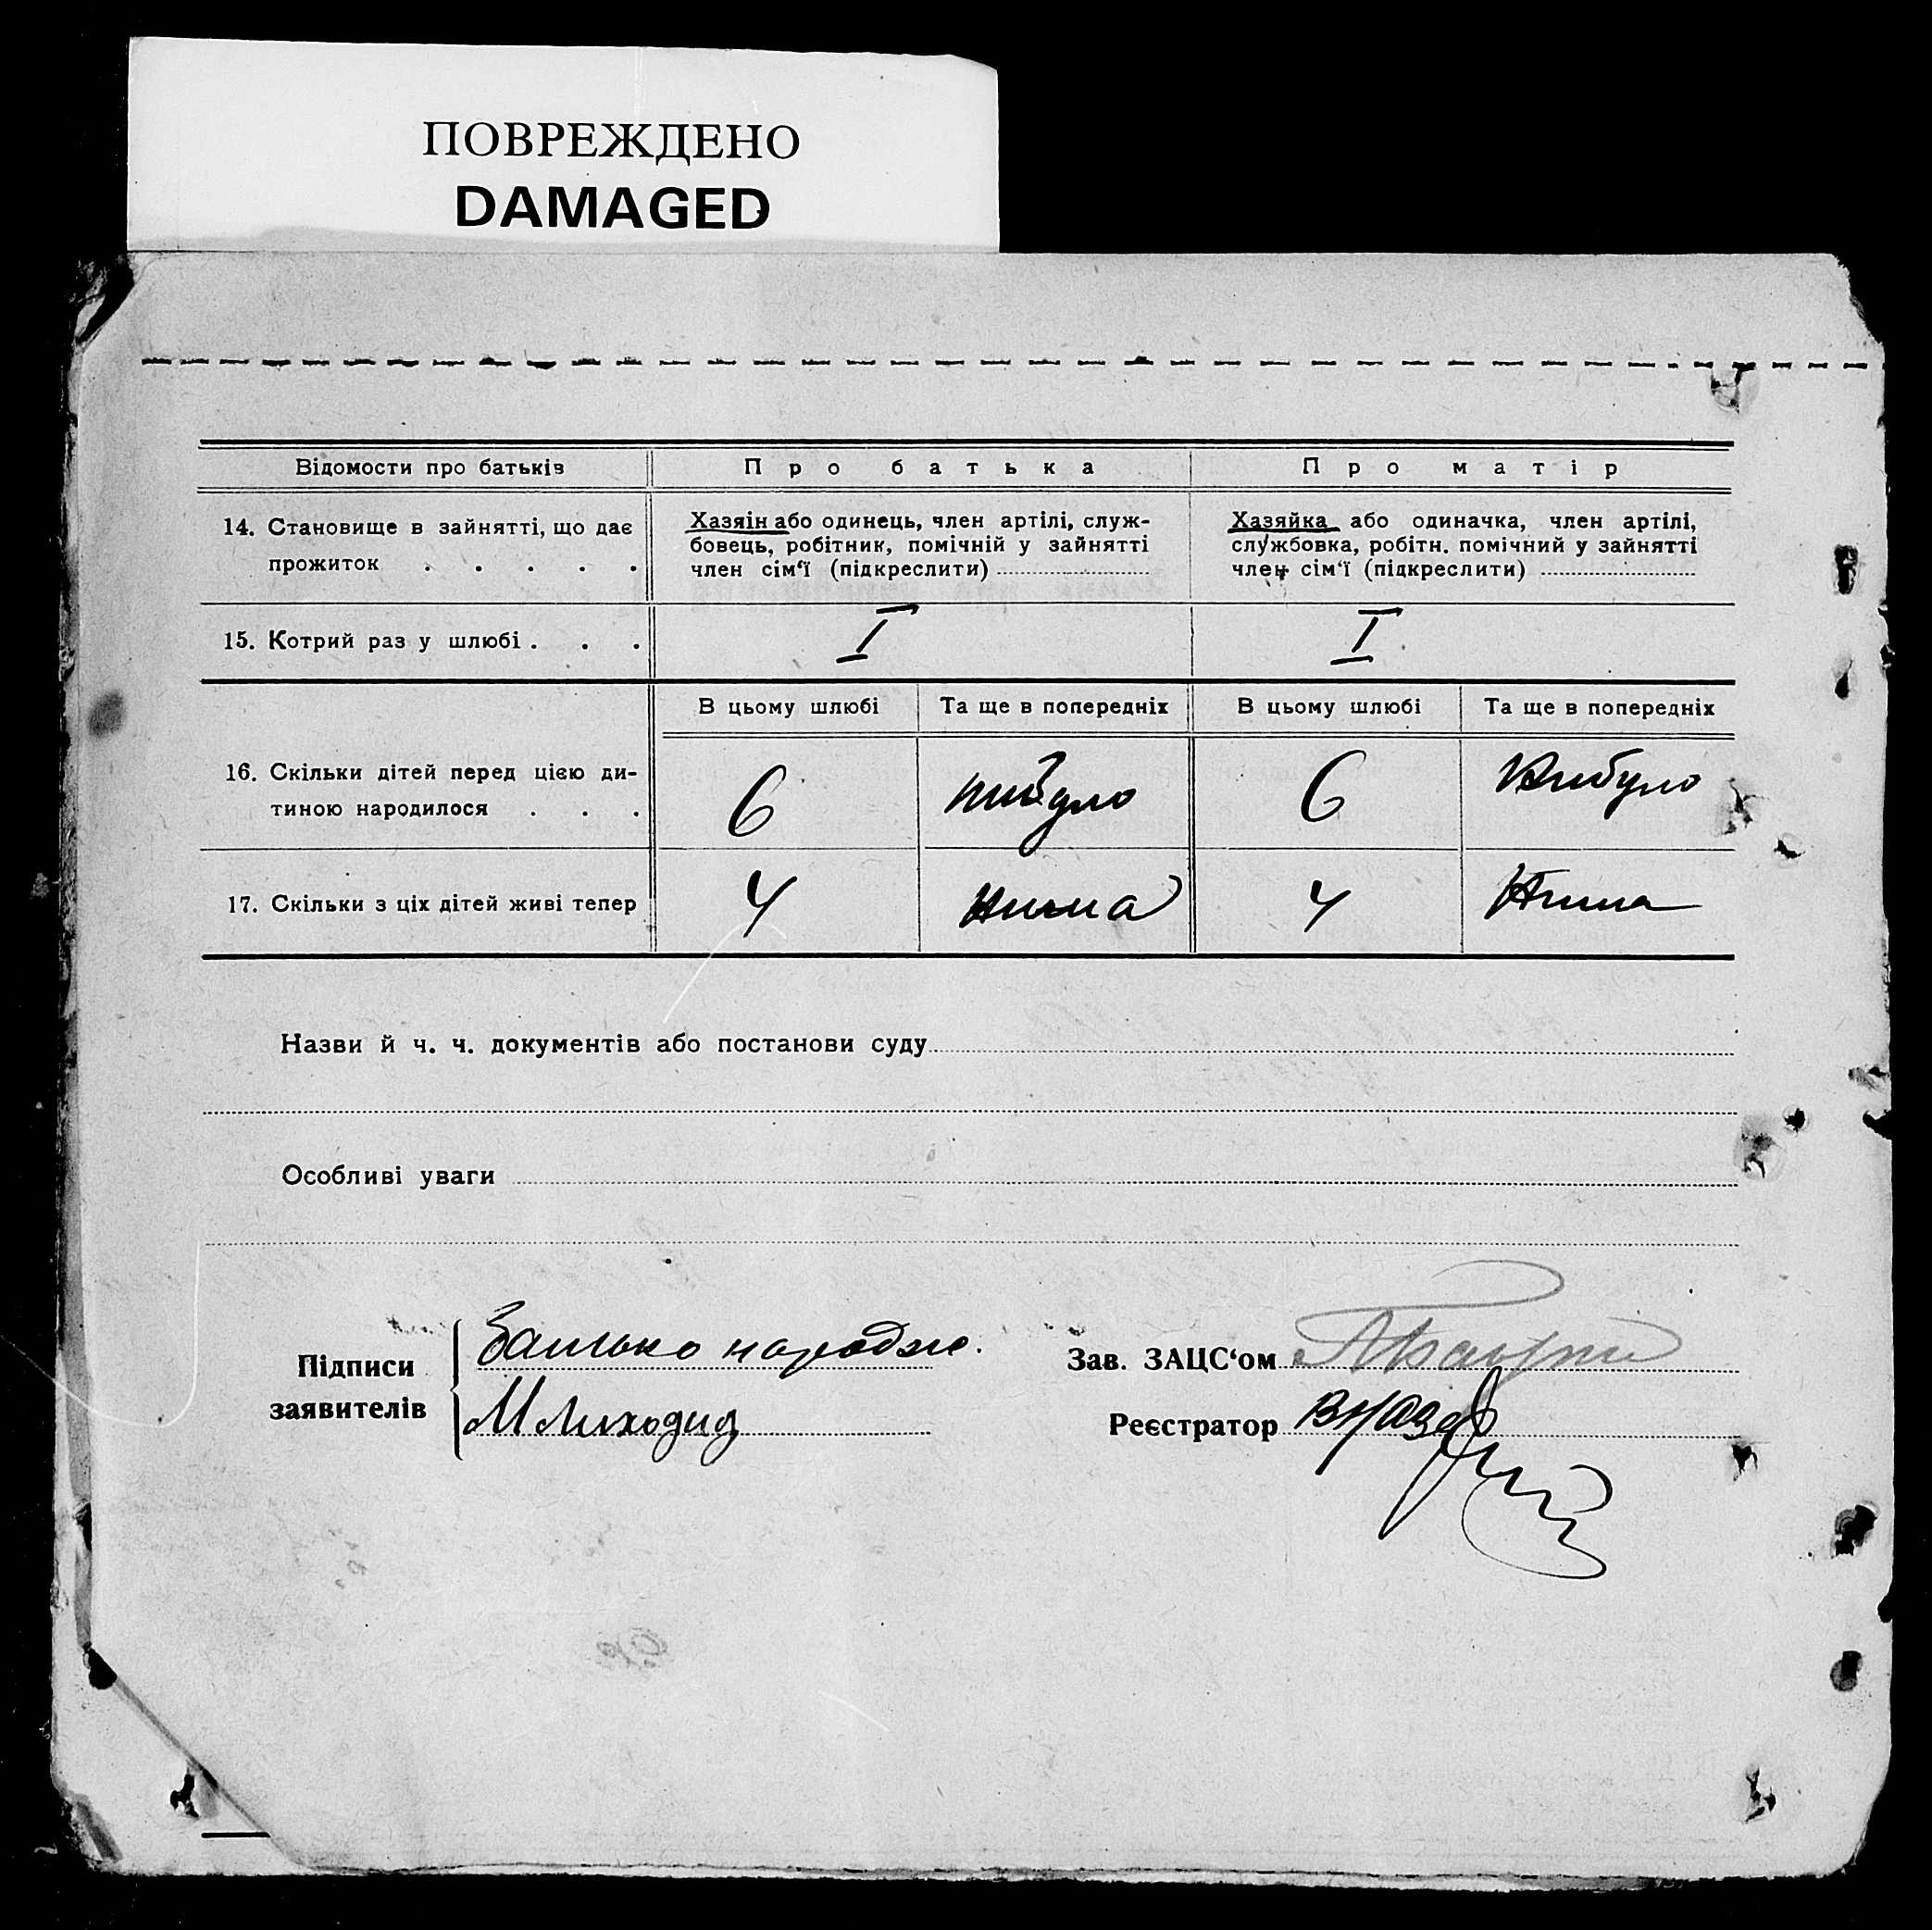 ПОВРЕЖДЕНО
DAMAGED
Відомости про батьків Про батька Про матір
14. Становище в зайнятті, що дає прожиток . . . . .
Хазяін або одинець, член артілі, служ-
бовець, робітник, помічній у зайнятті
член сім'ї (підкреслити)
Хазяйка або одиначка, член артілі,
службовка, робітн. помічний у зайнятті
член сім'ї (підкреслити)
15. Котрий раз у шлюбі . . . I I
В цьому шлюбі Та ще в попередніх В цьому шлюбі Та ще в попередніх
16. Скільки дітей перед цією ди-
тиною народилося . . . 6 нибуло 6 нибуло
17. Скільки з ціх дітей живі тепер 4 нима 4 нима
Назви й ч. ч. документів або постанови суду
Особливі уваги
Підписи
заявителів
Батько народж.
М Лиходид
Зав. ЗАЦС'ом
Реєстратор